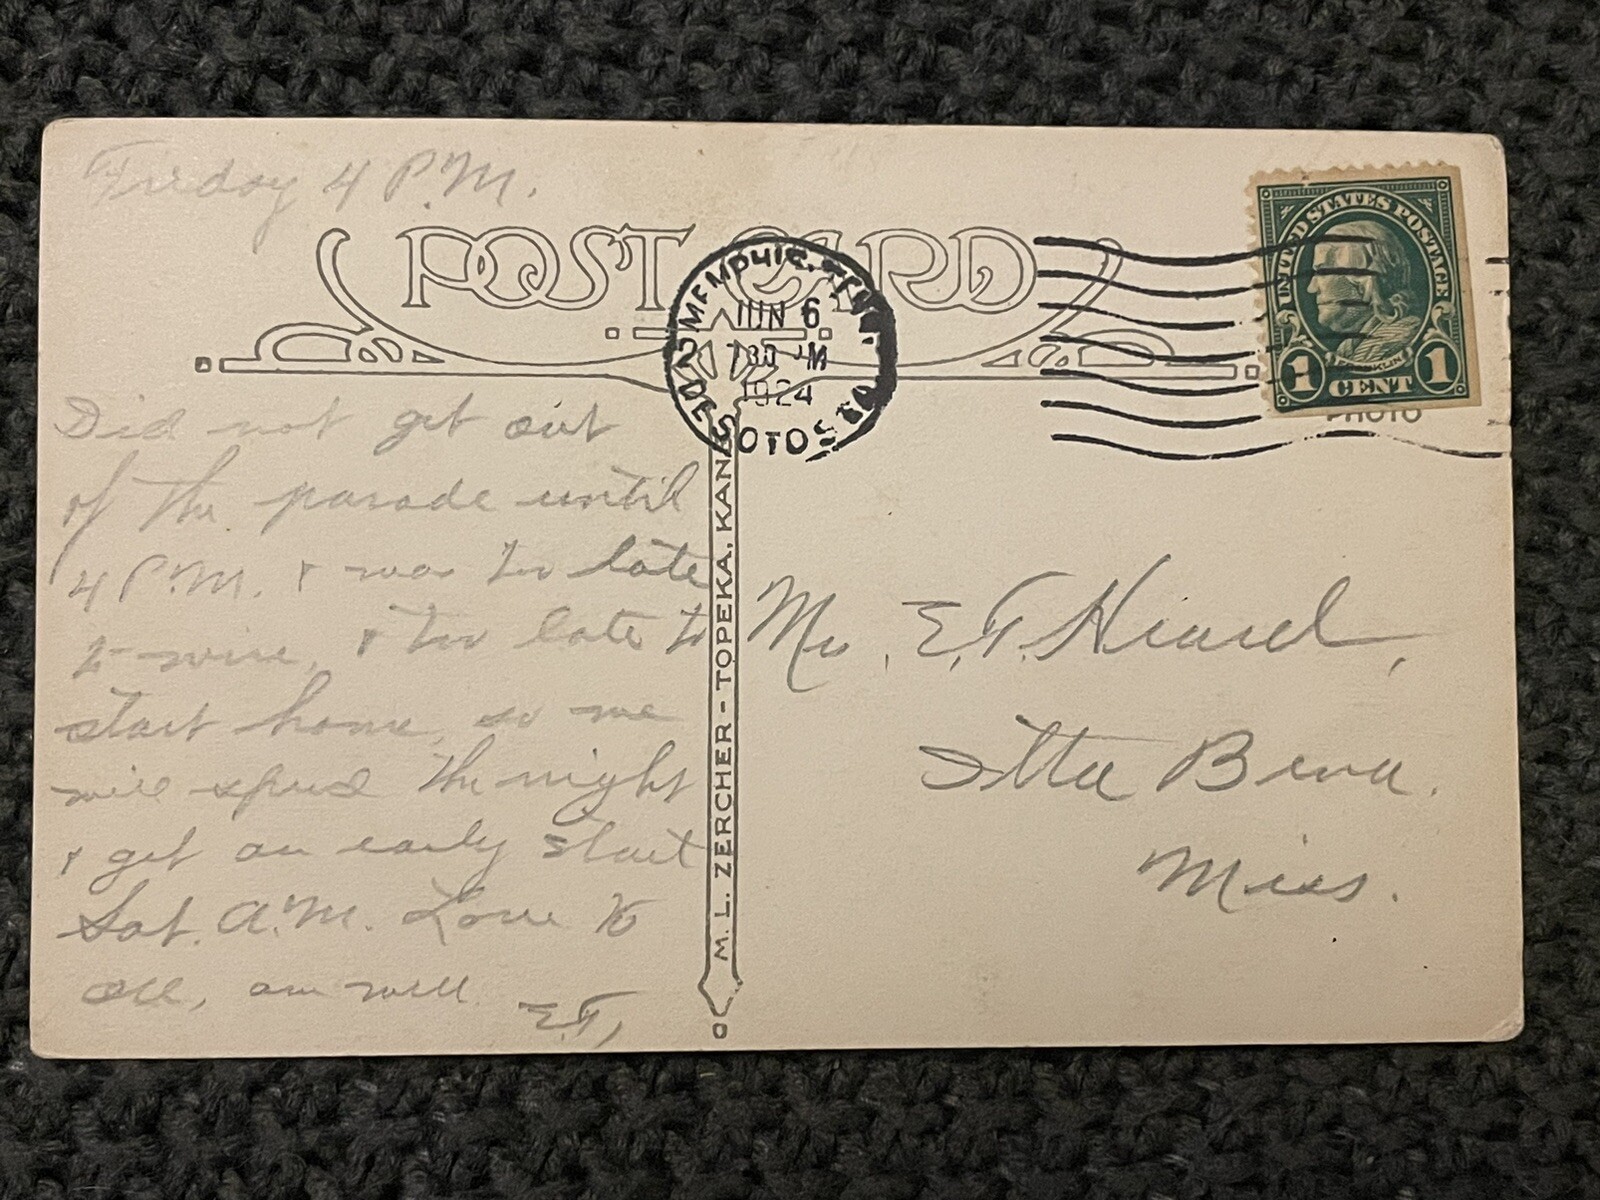 Friday 4 P.M.
POST CARD
MEMPHIS, TENN.
DE SOTO STA.
2
JUN 6
730 PM
1924
UNITED STATES POSTAGE
FRANKLIN
1 CENT 1
PHOTO
Did not get out
of the parade until
4 P.M. & was too late
to wire, & too late to
start home, so we
will spend the night
& get an early start
Sat. A.M. Love to
all, am well
E.T,
M. L. ZERCHER - TOPEKA, KANS.
E.T.
Itta Bena.
Miss.